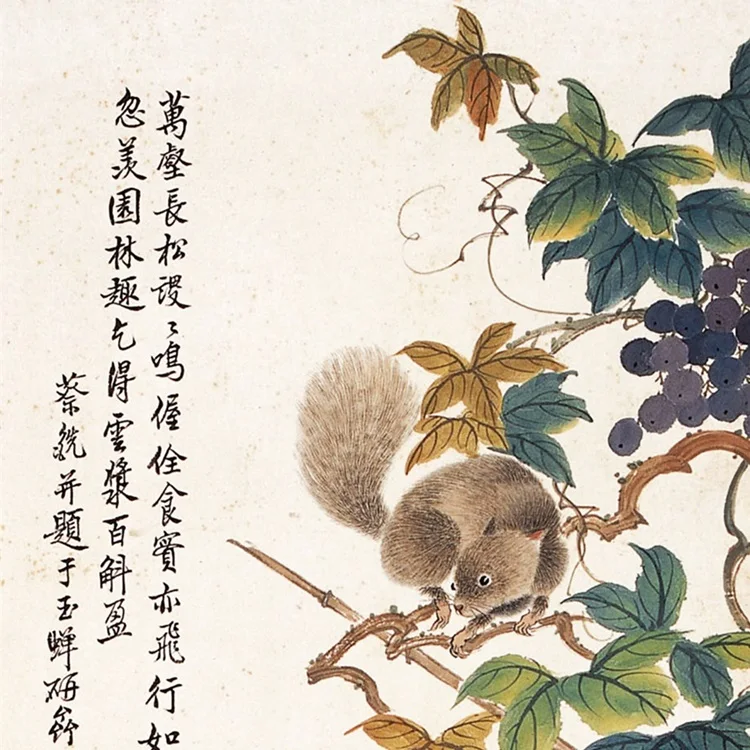 萬壑長松謖〻鳴偓佺食實亦飛行如
忽羨園林趣乞得雲漿百斛盈
蔡銑并題于玉蟬研斋